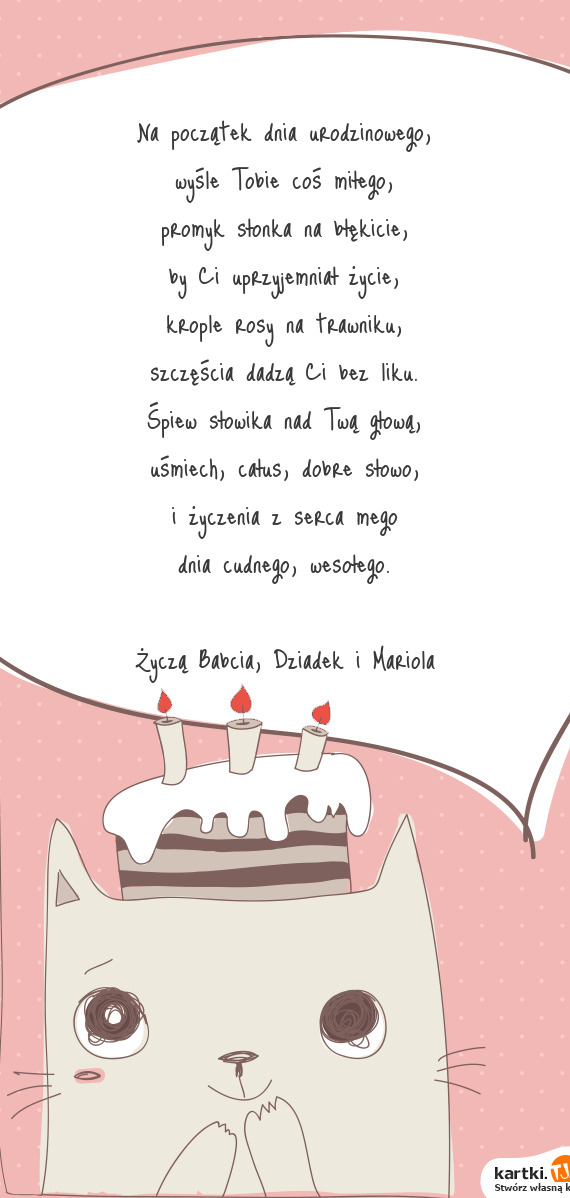 Na początek dnia urodzinowego,
wyśle Tobie coś miłego,
promyk słonka na błękicie,
by Ci uprzyjemniał życie,
krople rosy na trawniku,
szczęścia dadzą Ci bez liku.
Śpiew słowika nad Twą głową,
uśmiech, całus, dobre słowo,
i życzenia z serca mego
dnia cudnego, wesołego.
Życzą Babcia, Dziadek i Mariola
kartki.TJ
Stwórz własną k